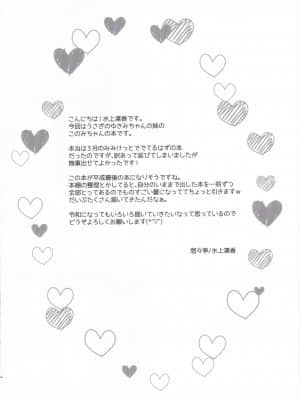 こんにちは!水上凛香です。
今回はうさぎのゆきみちゃんの妹の
このみちゃんの本です。
本当は3月のみみけっとででてるはずの本
だったのですが、訳あって延びてしまいましたが
無事出せてよかったです!
この本が平成最後の本になりそうですね。
本棚の整理とかしてると、自分のいままで出した本を一冊ずつ
全部とってあるのでものすごい量になっててちょっと引きますw
だいぶたくさん描いてきたんだなぁ。
令和になってもいろいろ描いていきたいなって思っているので
どうぞよろしくお願いします(*'▽')
悠々寧/水上凛香